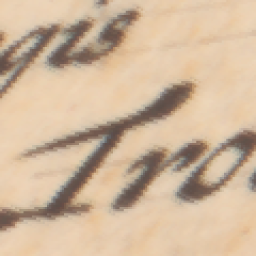 gis
Tro